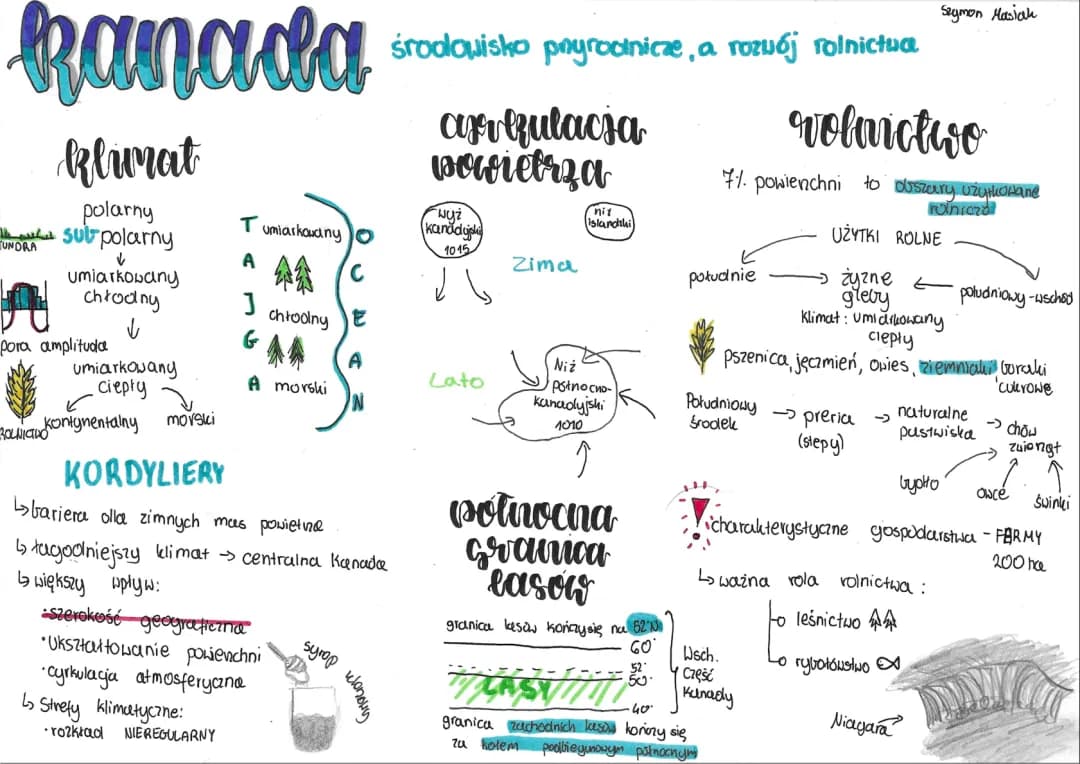 Szymon Masiak
kanada
środowisko przyrodnicze, a rozwój rolnictwa
klimat
polarny
TUNDRA
subpolarny
umiarkowany
chłodny
pora amplituda
umiarkowany
ciepły
ROLNICTWO
kontynentalny
morski
TAJGA
umiarkowany
chłodny
morski
OCEAN
KORDYLIERY
↳ bariera dla zimnych mas powietrza
↳ łagodniejszy klimat → centralna Kanada
↳ większy wpływ:
• szerokość geograficzna
• ukształtowanie powierzchni
• cyrkulacja atmosferyczna
↳ strefy klimatyczne:
• rozkład NIEREGULARNY
syrop
klonowy
cyrkulacja
powietrza
wyż
kanadyjski
1015
niż
islandzki
zima
Lato
Niż
północno-
kanadyjski
1010
północna
granica
lasów
granica lasów kończy się na 52°N
60°
52°
50°
LASY
40°
Wsch.
część
Kanady
granica zachodnich lasów kończy się
za kołem podbiegunowym północnym
rolnictwo
7% powierzchni to obszary użytkowane
rolniczo
UŻYTKI ROLNE
południe → żyzne
gleby ← południowy-wschód
klimat: umiarkowany
ciepły
pszenica, jęczmień, owies, ziemniaki buraki
cukrowe
Południowy
środek → preria
(stepy) → naturalne
pastwiska → chów
zwierząt
bydło
owce
świnki
! charakterystyczne gospodarstwa - FARMY
200 ha
↳ ważna rola rolnictwa:
leśnictwo
rybołówstwo
Niagara